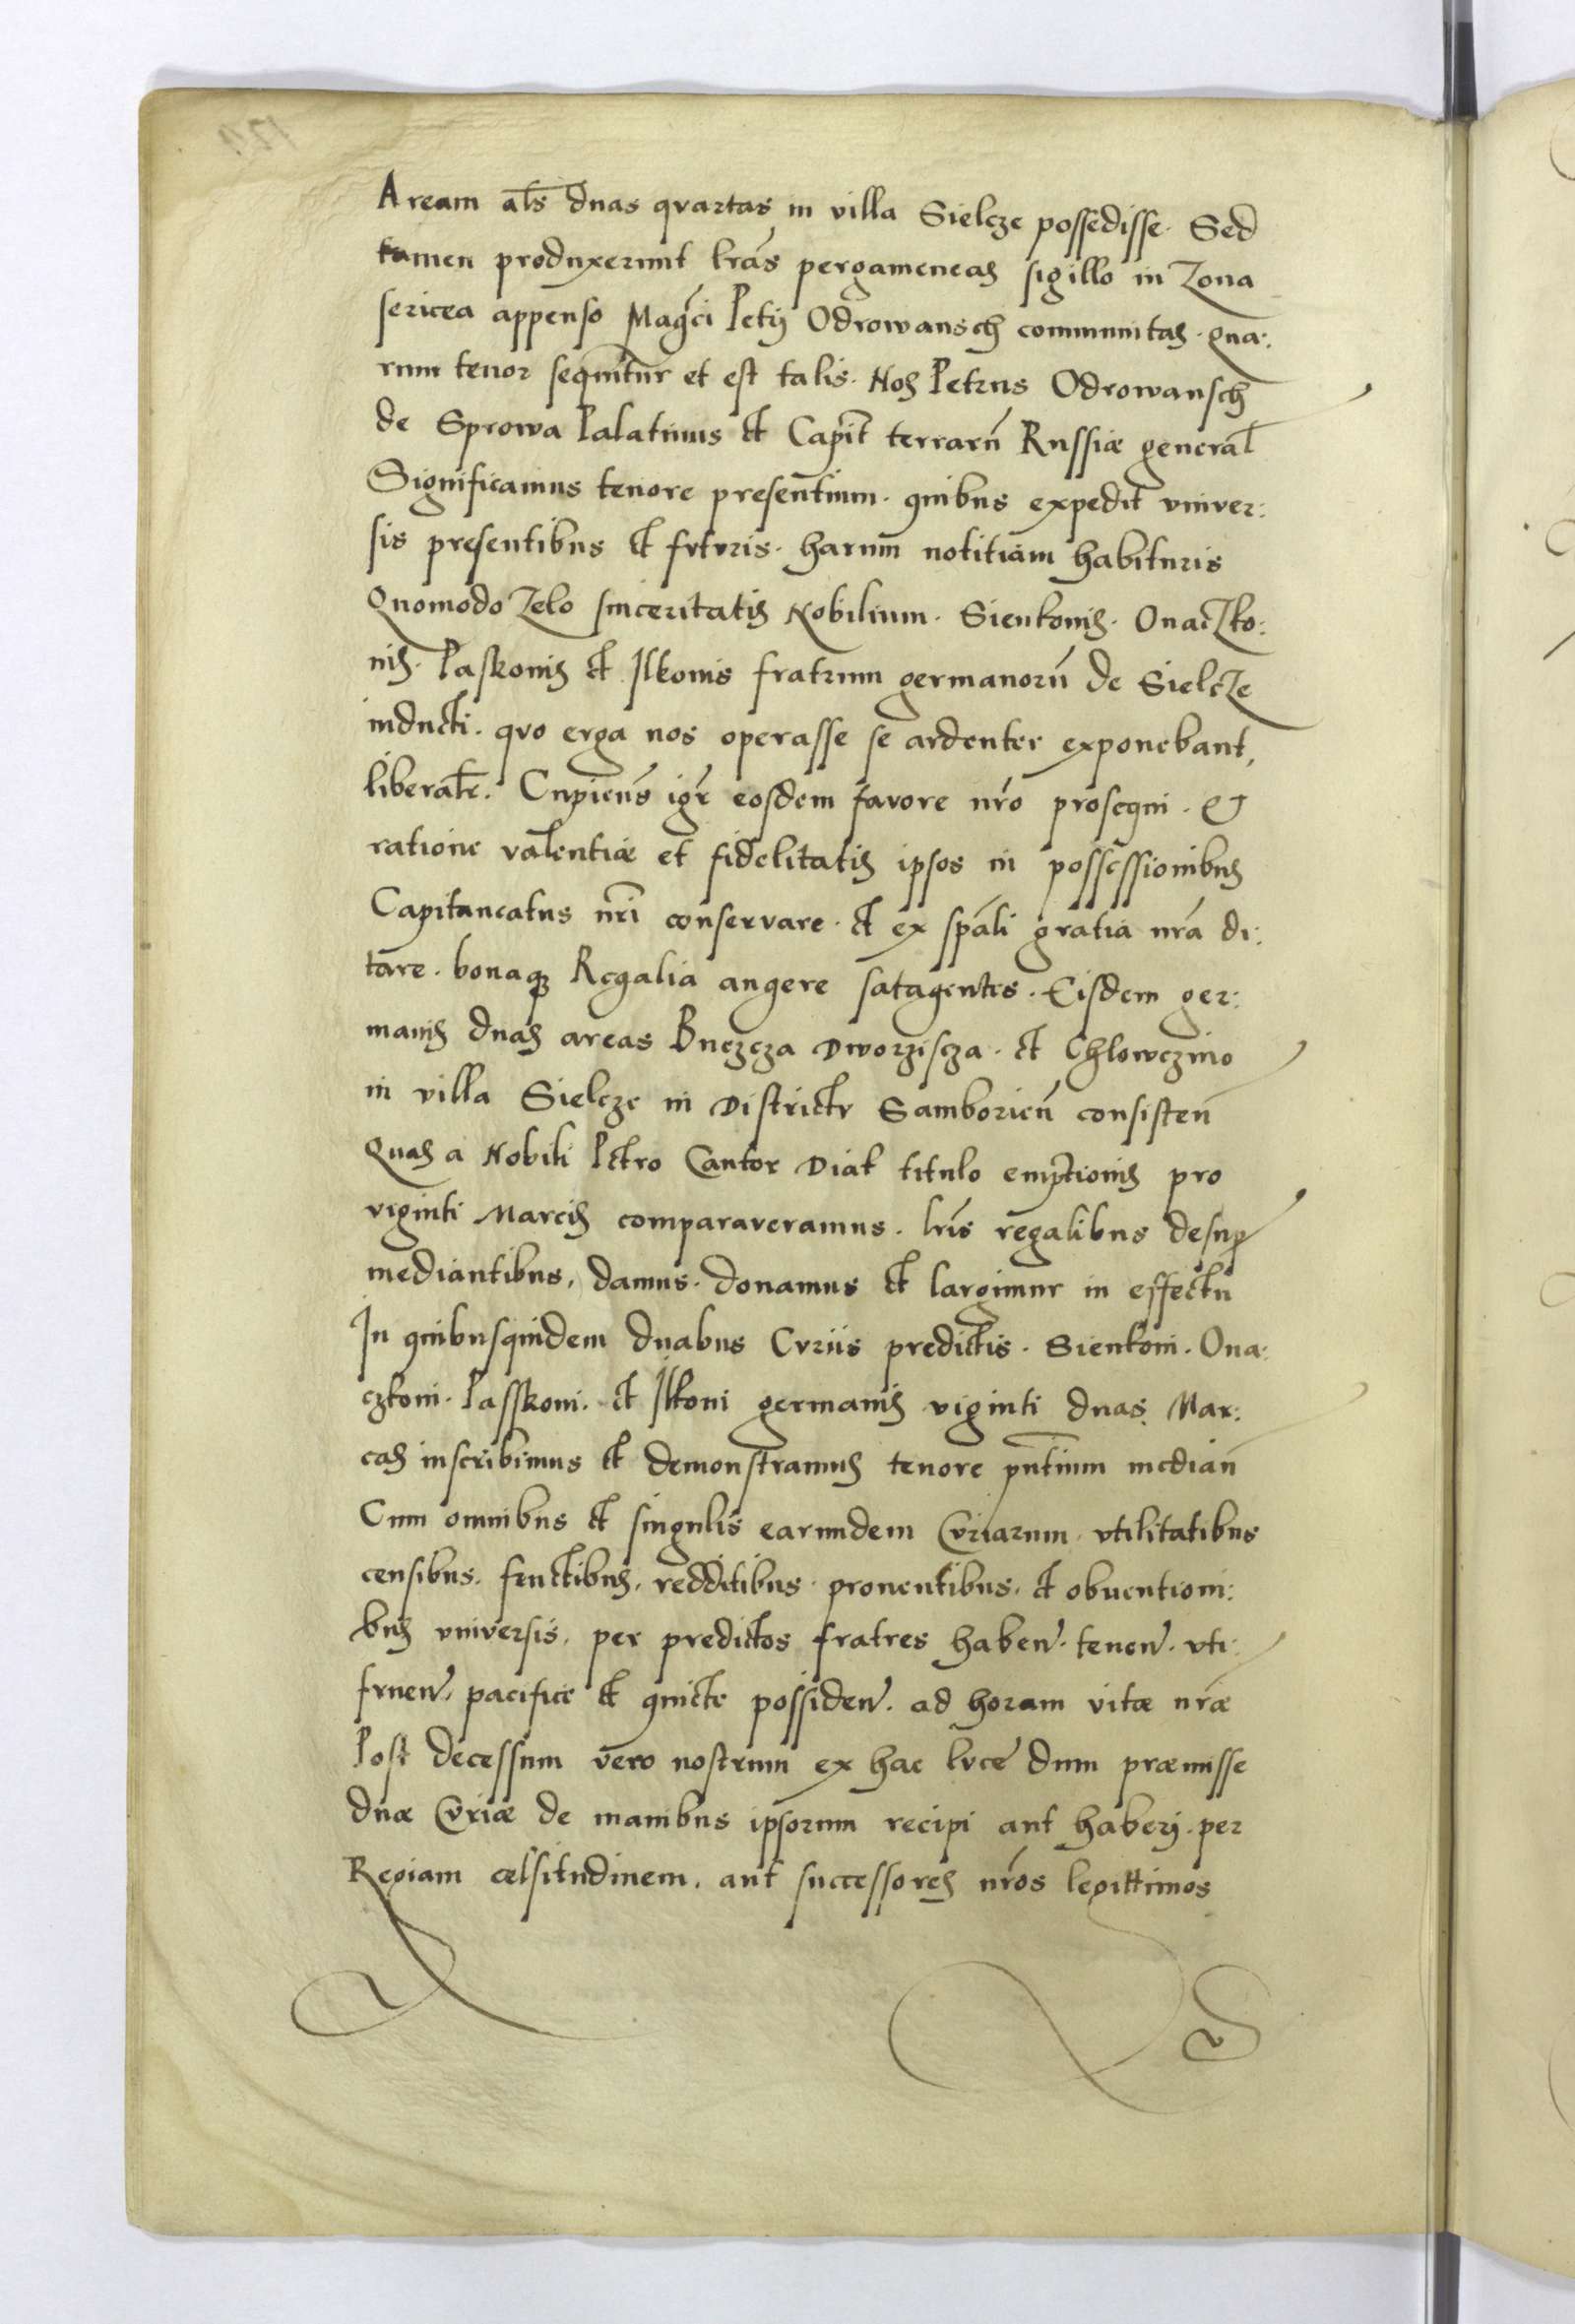 Aream als duas qvartas in villa Sielcze possedisse. Sed
tamen produxerunt lras pergameneas sigillo in Zona
sericea appenso Magci Petri Odrowansch communitas. qua:
rum tenor sequitur et est talis. Nos Petrus Odrowansch
de Sprowa Palatinus et Capit terraru Russiæ general
Significamus tenore presentium. quibus expedit vniver:
sis presentibus et fvtvris. harum notitiam habituris
Quomodo Zelo sinceritatis Nobilium. Sienkonis. Onaczko:
nis. Paskonis et Ilkonis fratrum germanoru de Sielcze
inducti. qvo erga nos operasse se ardenter exponebant,
liberalr. Cupiens igr eosdem favore nro prosequi. Et
ratione valentiæ et fidelitatis ipsos in possessionibus
Capitaneatus nri conservare. et ex spali gratia nra di:
tare. bonaqz Regalia augere satagentes. Eisdem ger:
manis duas areas Buczcza Dworziscza. et Chlowczino
in villa Sielcze in Districtv Samborien consisten
Quas a Nobili Petro Cantor Diak titulo emptionis pro
viginti Marcis comparaveramus. lris regalibus desup
mediantibus, damus. donamus et largimur in effectu
In quibusquidem duabus Cvriis predictis. Sienkoni. Ona:
czkoni. Passkoni. et Ilkoni germanis viginti duas Mar:
cas inscribimus et demonstramus tenore pntium median
Cum omnibus et singulis earundem Cvriarum. vtilitatibus
censibus. fructibus, redditibus. prouentibus. et obuentioni:
bus vniversis. per predictos fratres haben. tenen. vti:
fruen. pacifice et quiete possiden. ad horam vitæ nræ
Post decessum vero nostrum ex hac lvce dum præmisse
duæ Cvriæ de manibus ipsorum recipi aut haberj. per
Regiam celsitudinem. aut successores nros legittimos